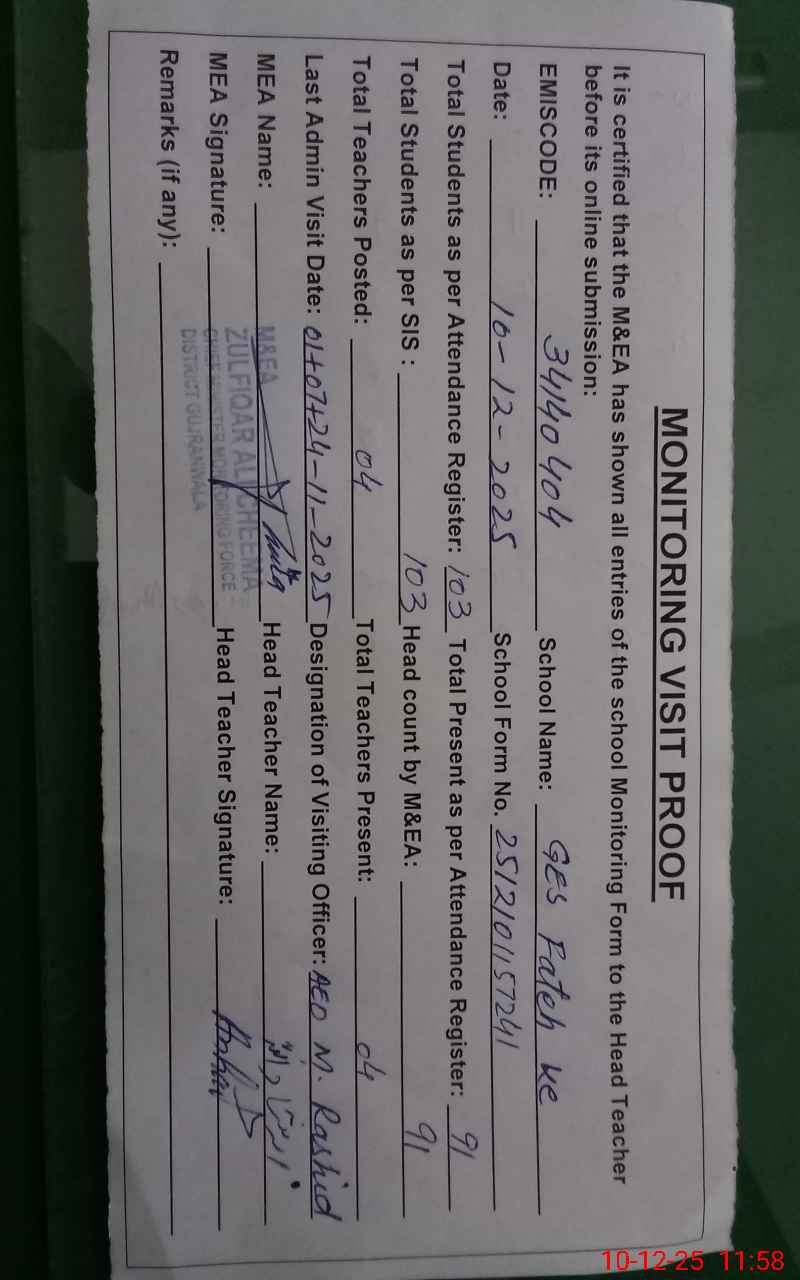 MONITORING VISIT PROOF
It is certified that the M&EA has shown all entries of the school Monitoring Form to the Head Teacher
before its online submission:
EMISCODE: 34140404 School Name: GES Fateh ke
Date: 10-12-2025 School Form No. 2512101157241
Total Students as per Attendance Register: 103 Total Present as per Attendance Register: 91
Total Students as per SIS : 103 Head count by M&EA: 91
Total Teachers Posted: 04 Total Teachers Present: 04
Last Admin Visit Date: 01+07+24-11-2025 Designation of Visiting Officer: AEO M. Rashid
MEA Name: Head Teacher Name:
MEA Signature: Head Teacher Signature:
M&EA
ZULFIQAR ALI CHEEMA
CHIEF MINISTER MONITORING FORCE
DISTRICT GUJRANWALA
Remarks (if any):
10-12-25 11:58